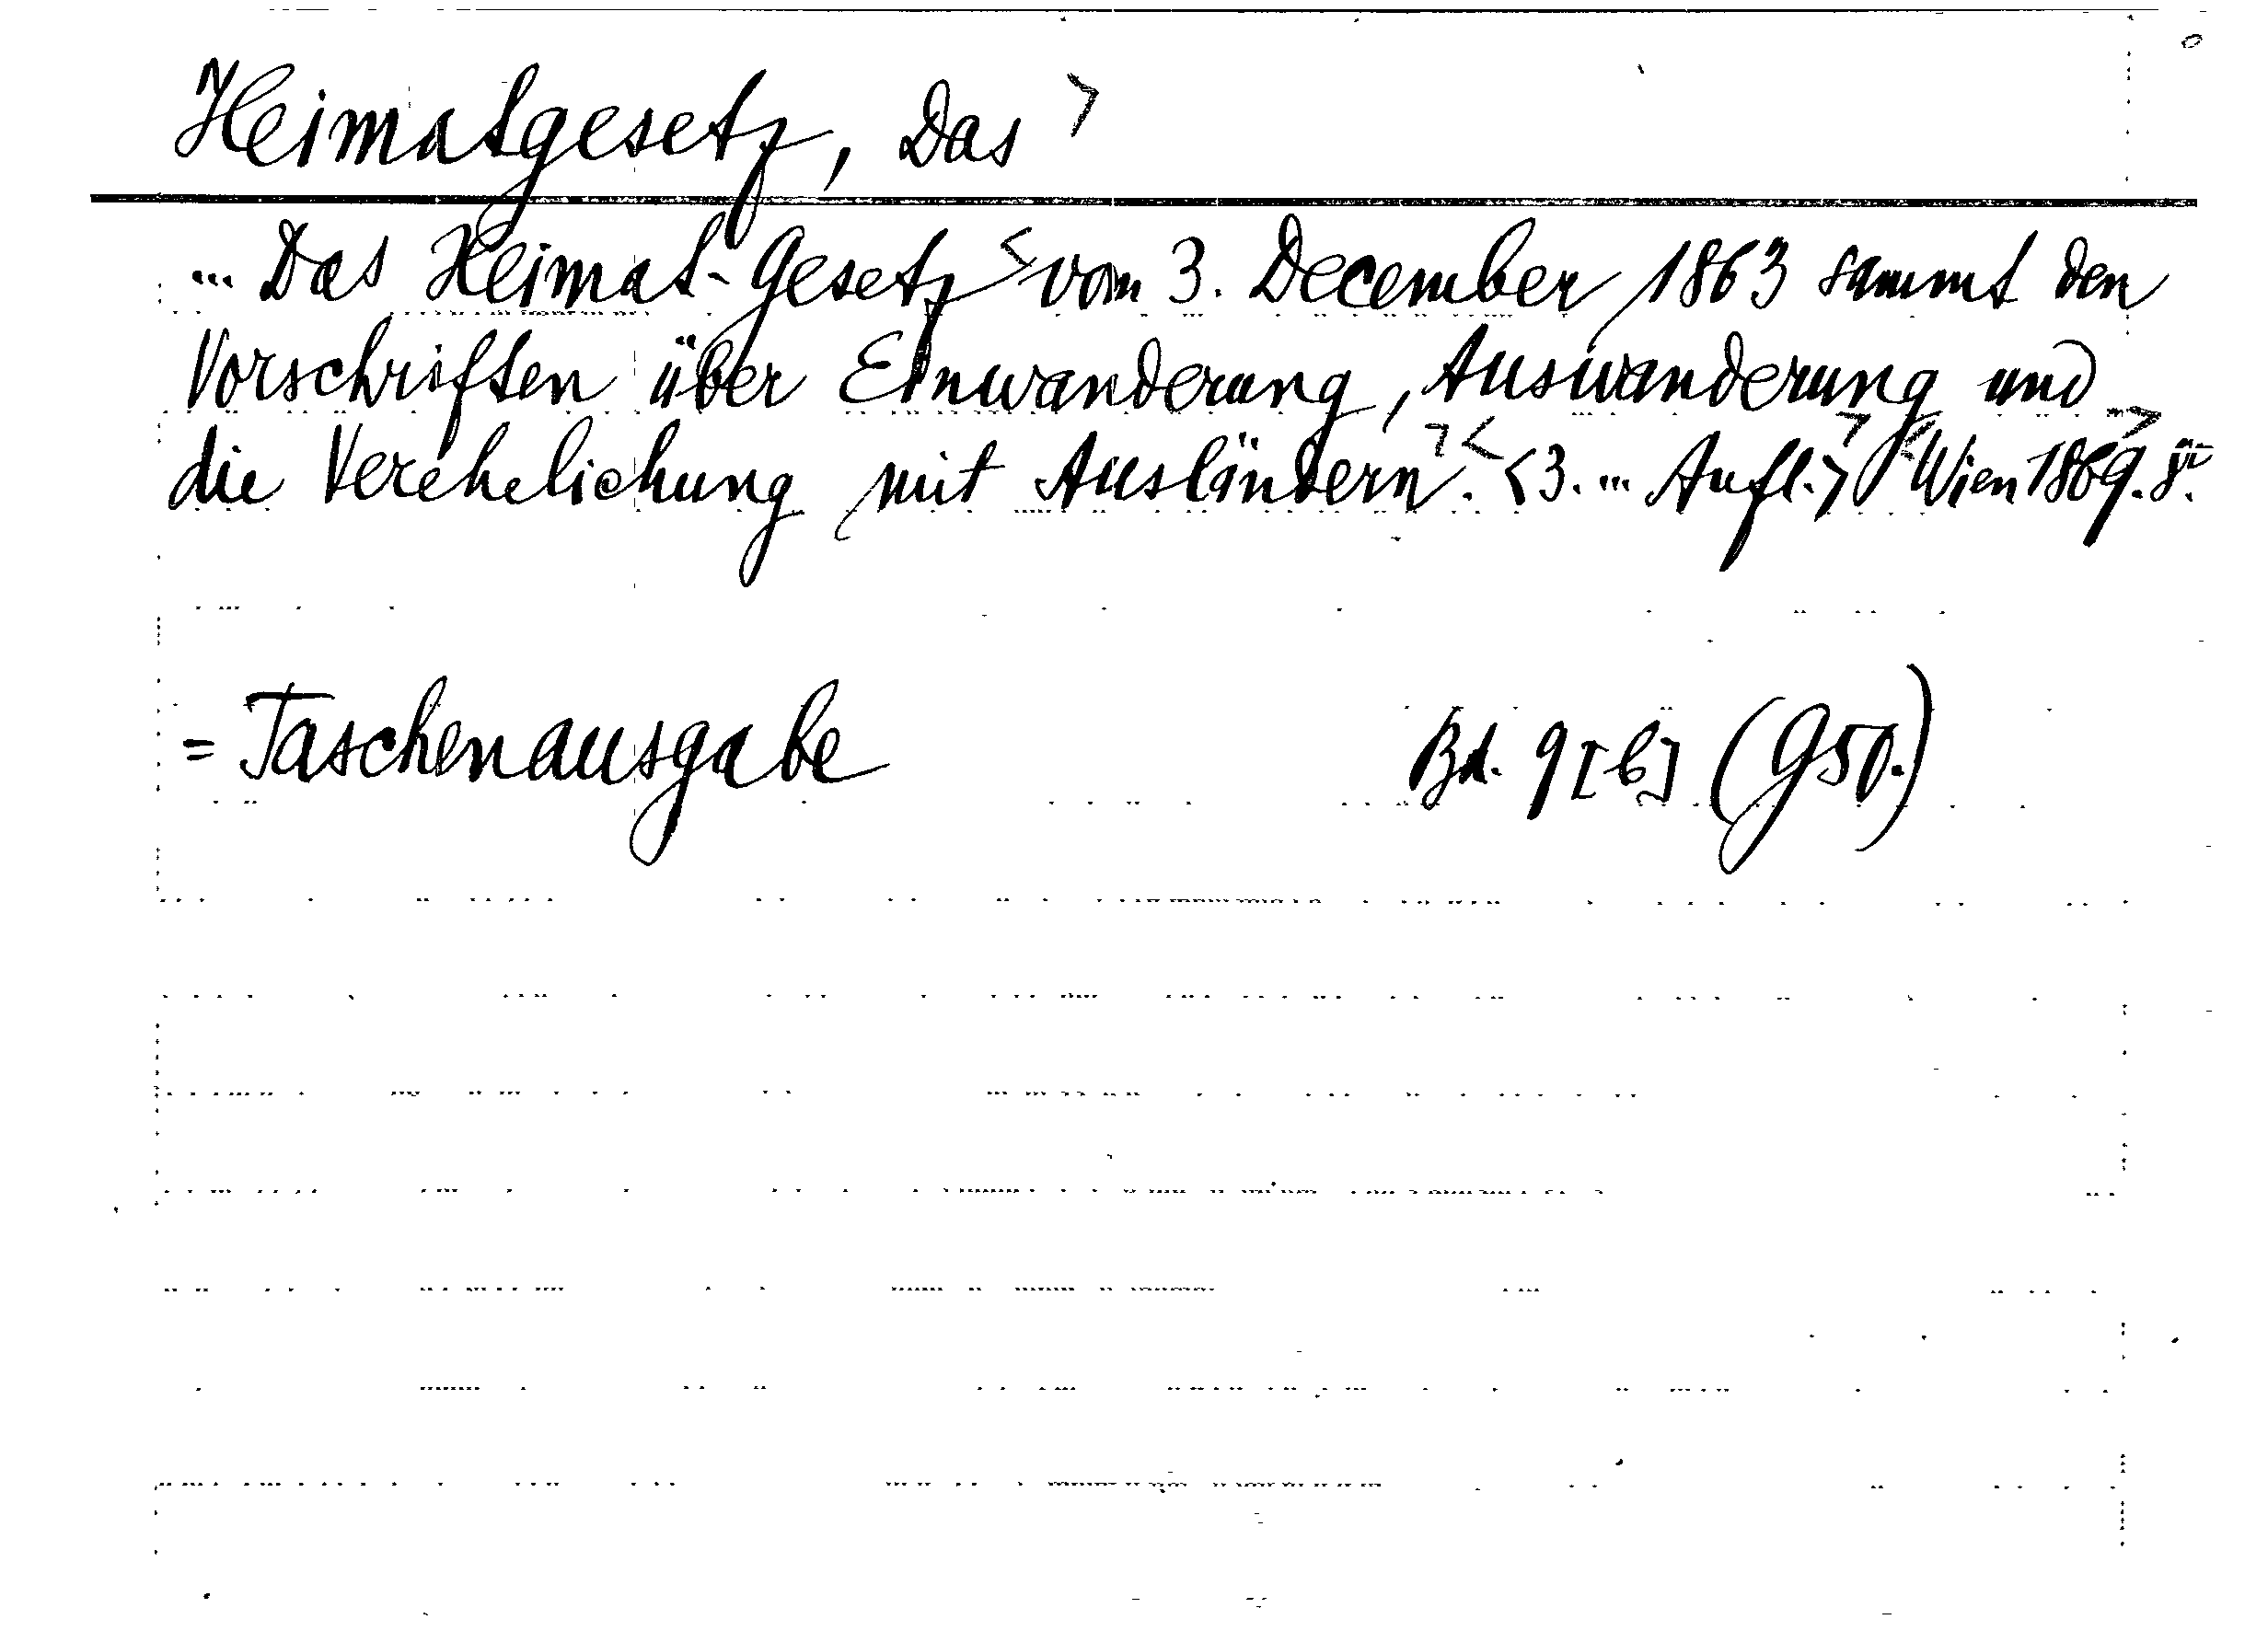 Heimatgesetz, Das >
... Das Heimat-Gesetz < vom 3. December 1863 sammt den
Vorschriften über Einwanderung, Auswanderung und
die Verehelichung mit Ausländern. > < <3. ... Aufl.> > < Wien 1869. 8°. >
= Taschenausgabe Bd. 9 [b] (950.)